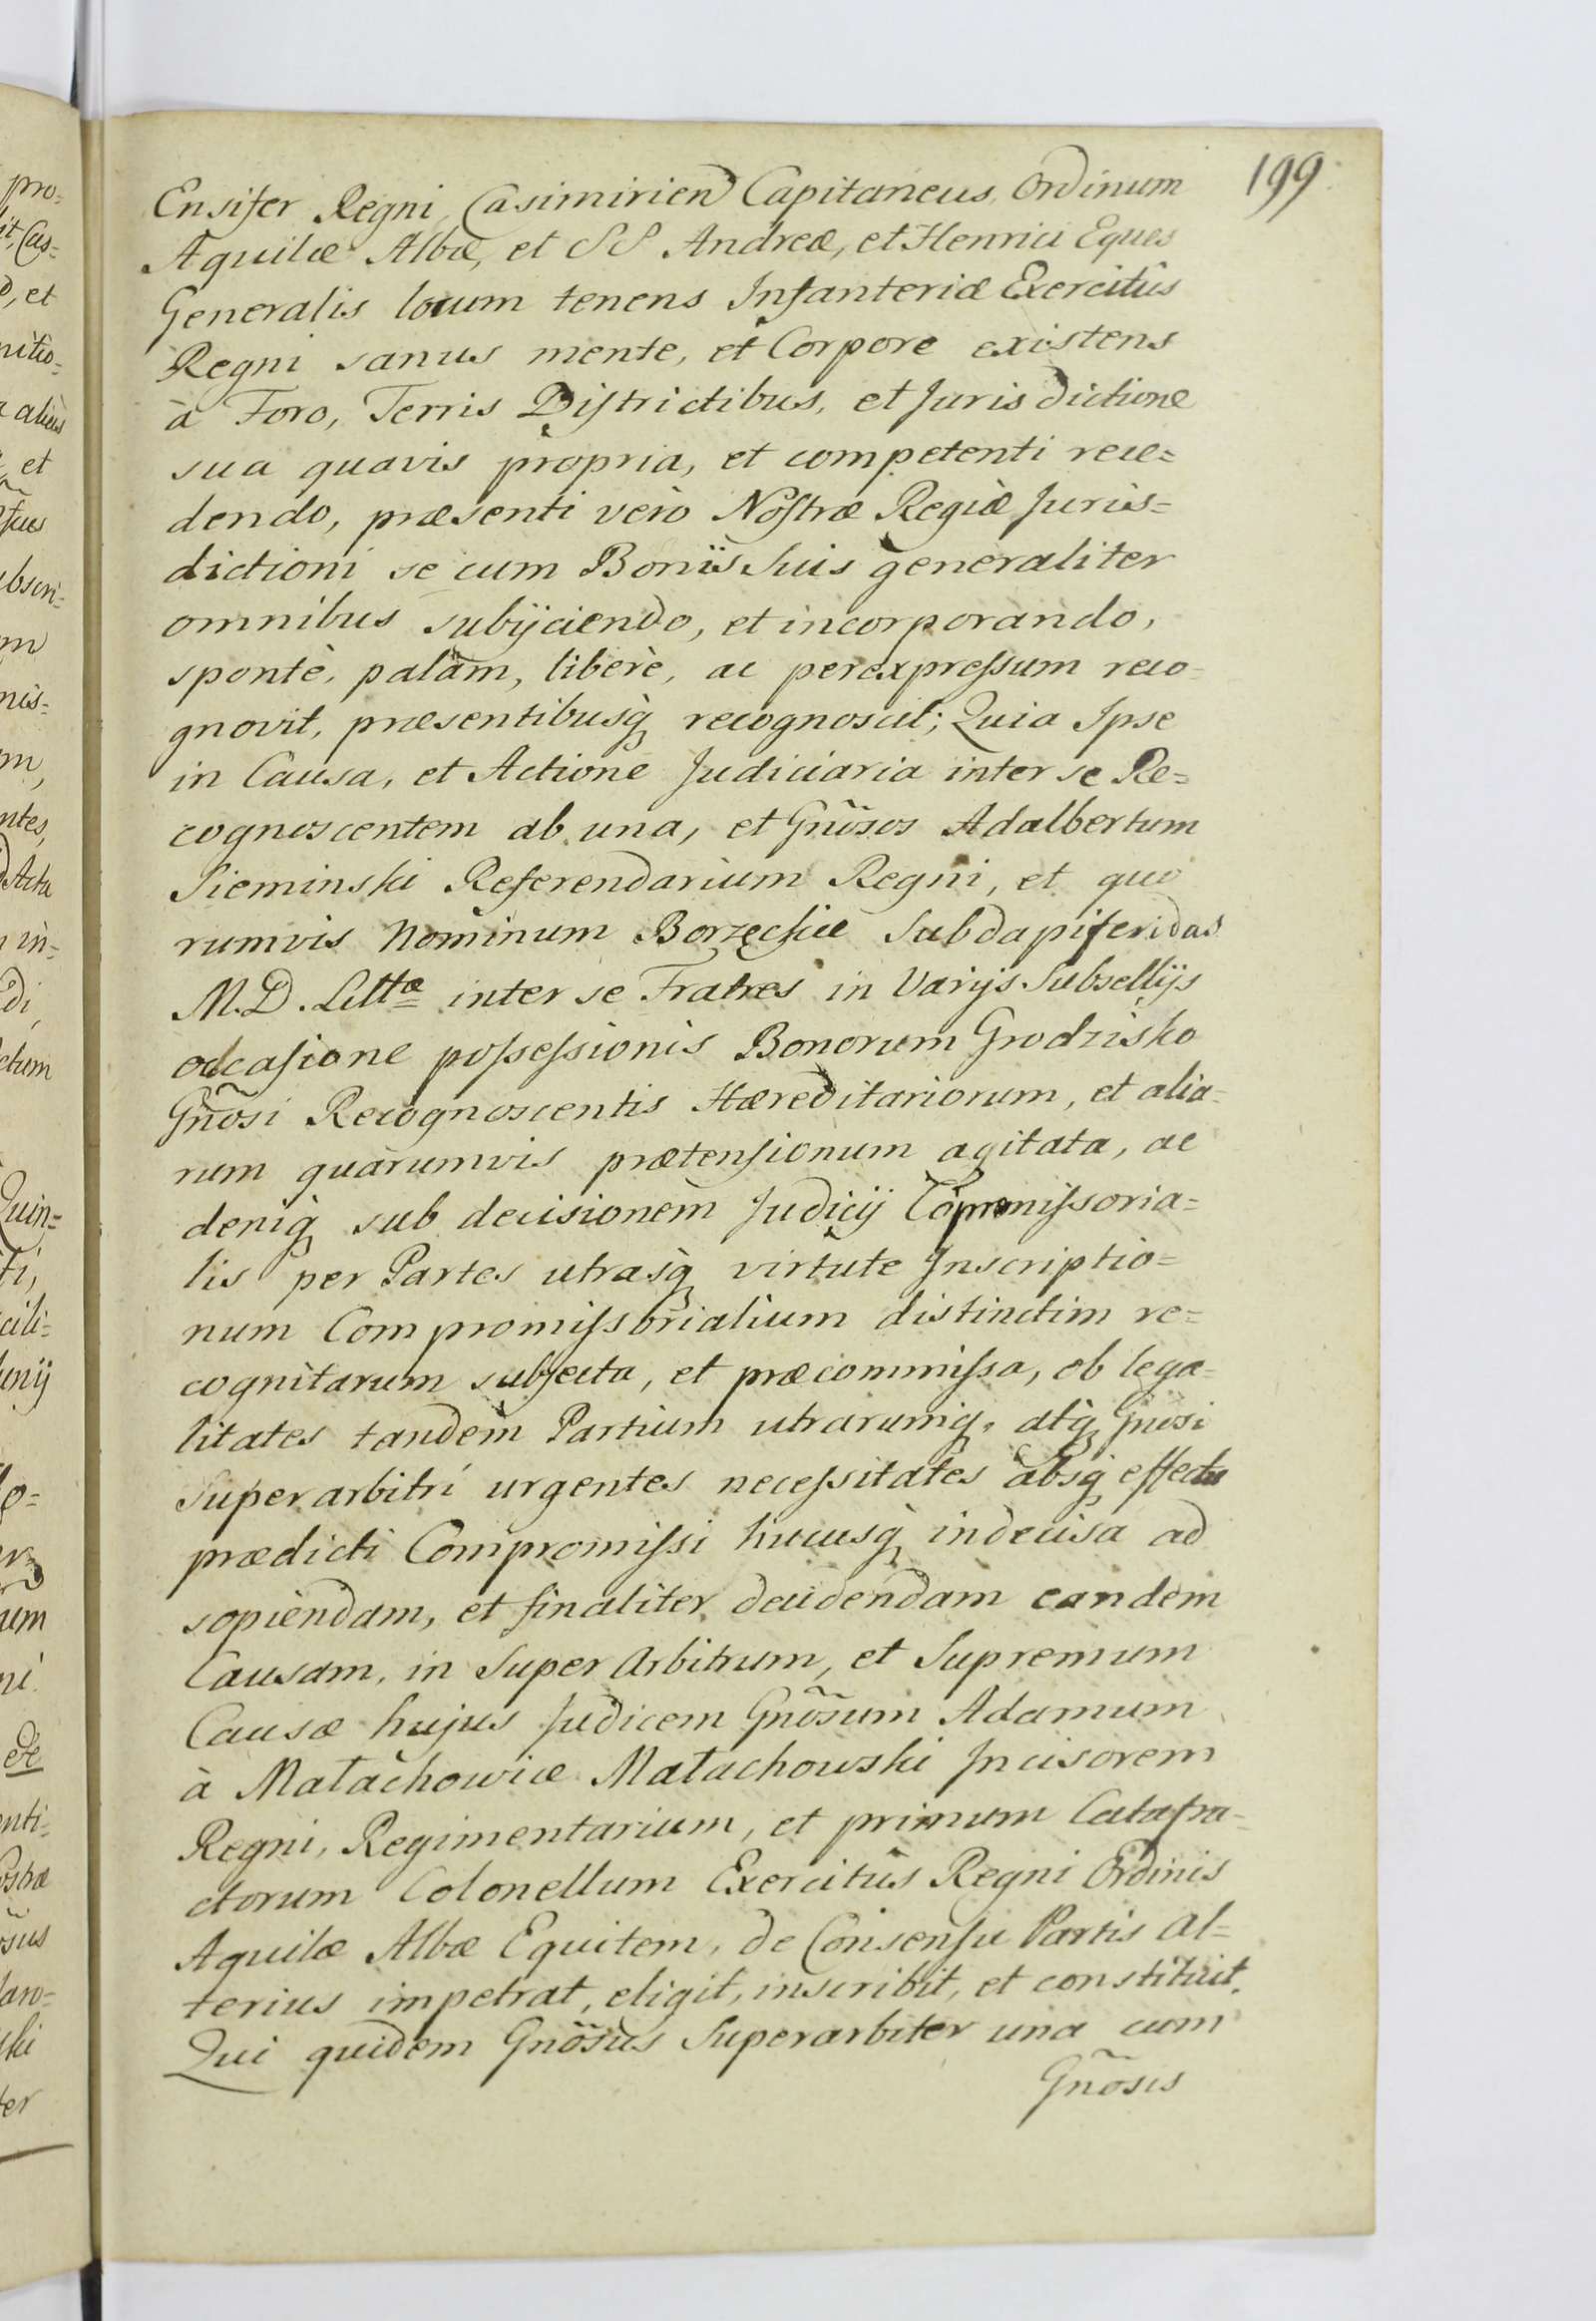 199
Ensifer Regni, Casimirien Capitaneus, Ordinum
Aquilæ Albæ, et SS Andreæ, et Henrici Eques
Generalis locum tenens Infanteriæ Exercitûs
Regni sanus mente, et Corpore existens
à Foro, Terris Districtibus, et Jurisdictione
sua quavis propria, et competenti rece=
dendo, præsenti verò Nostræ Regiæ Juris=
dictioni se cum Boniis Suis generaliter
omnibus subijciendo, et incorporando,
spontè, palàm, liberè, ac per expressum reco=
gnovit, præsentibusq̀ recognoscit; Quia Ipse
in Causa, et Actione Judiciaria inter se Re=
cognoscentem ab una, et Gñosos Adalbertum
Sieminski Referendarium Regni, et quo
rumvis Nominum Borzęckie Subdapiferidas
M.D. Littæ inter se Fratres in Varijs Subsellijs
occasione possessionis Bonorum Grodzisko
Gñosi Recognoscentis Hæreditariorum, et alia=
rum quàrumvis prætensionum agitata, ac
deniq̀ sub decisionem Judicij Compromissoria=
lis per Partes utrasq̀ virtute Inscriptio=
num Compromissorialium distinctim re=
cognitarum subjecta, et præcommissa, ob lega=
litates tandem Partium utrarumq̀, atq̀ Gñosi
Superarbitri urgentes necessitates absq̀ effectu
prædicti Compromissi hucusq̀ indecisa ad
sopiendam, et finaliter decidendam eandem
Causam, in Super Arbitrum, et Supremum
Causæ hujus Judicem Gñosum Adamum
à Małachowice Małachowski Incisorem
Regni, Regimentarium, et primum Catafra=
ctorum Colonellum Exercitûs Regni Ordinis
Aquilæ Albæ Equitem, de Consensu Partis Al=
terius impetrat, eligit, inscribit, et constituit.
Qui quidem Gñosus Superarbiter una cum
Gñosis